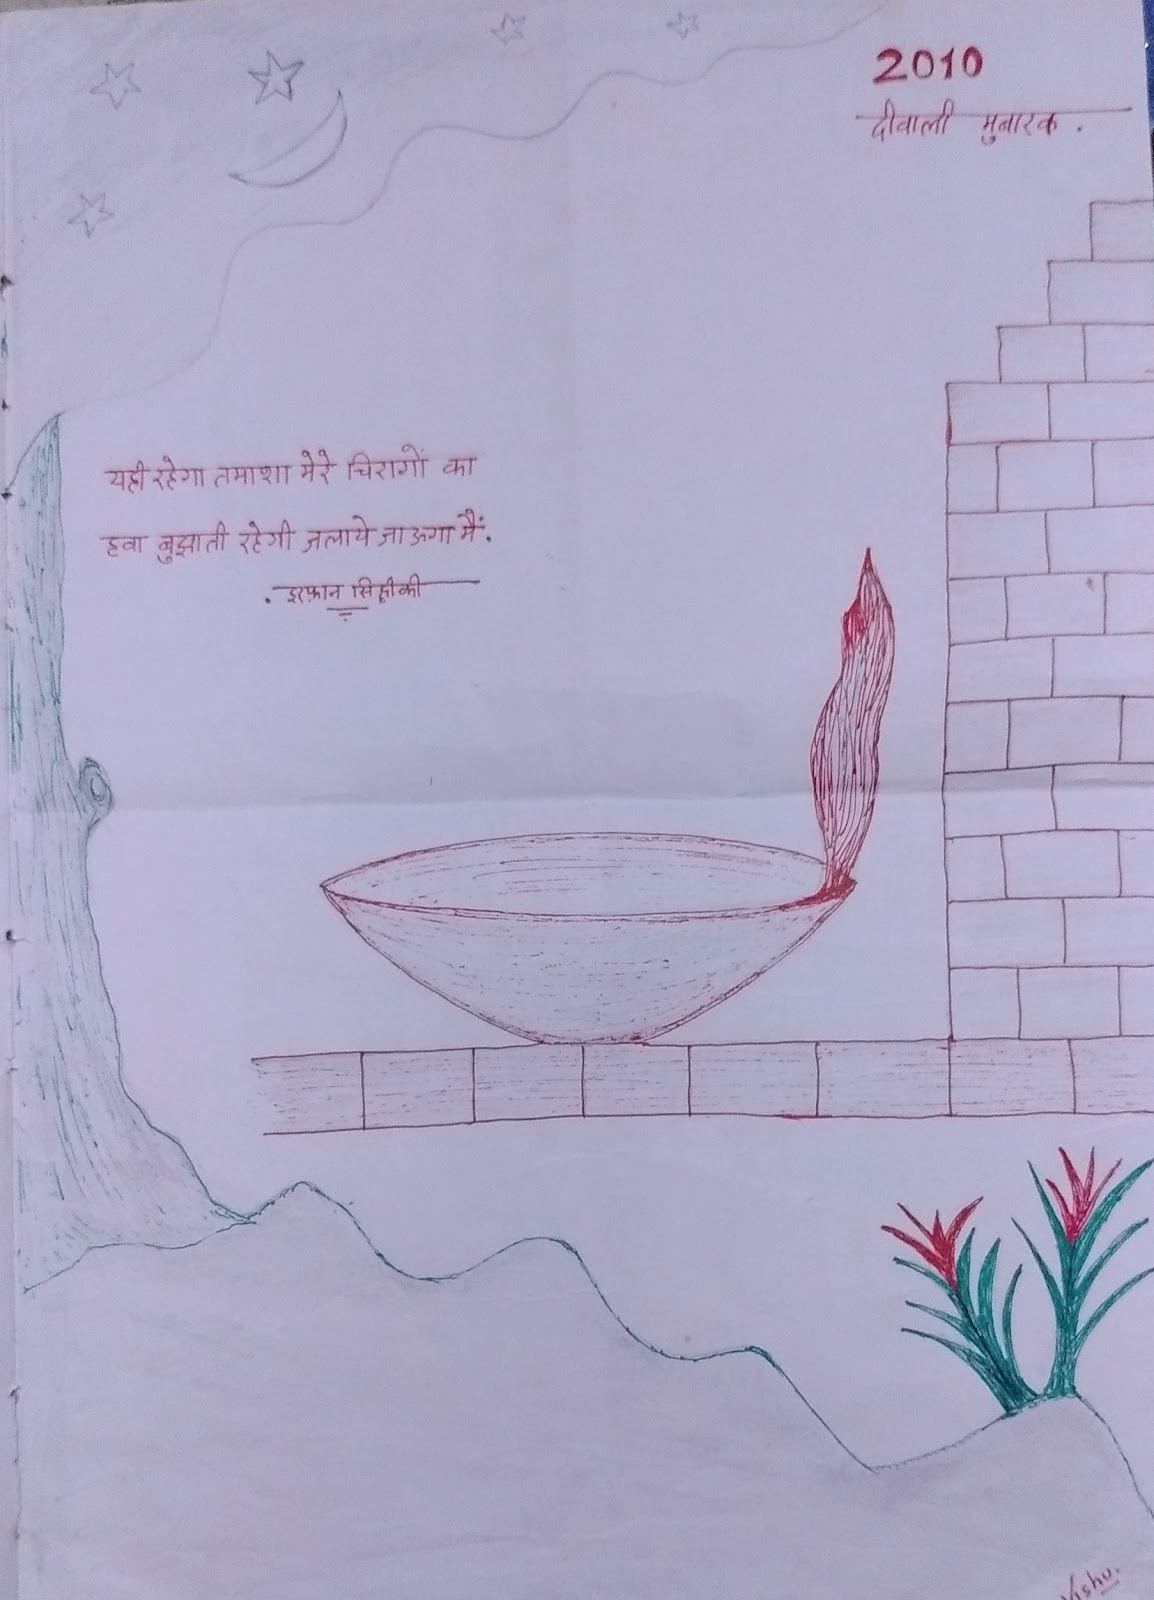 2010
दीवाली मुबारक.
यही रहेगा तमाशा मेरे चिरागों का
हवा बुझाती रहेगी जलाये जाऊगा मैं.
. इरफ़ान सिद्दीकी
Vishu.